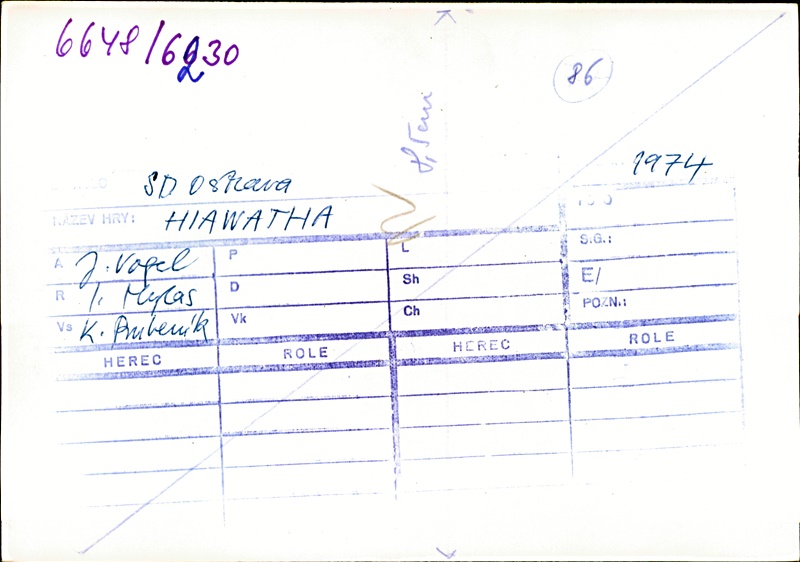 6648/6230
86
SD Ostrava
1974
NÁZEV HRY: HIAWATHA
A J. Vogel P L S.G.:
R I. Mylas D Sh E/
Vs K. Vk Ch POZN.:
HEREC ROLE HEREC ROLE